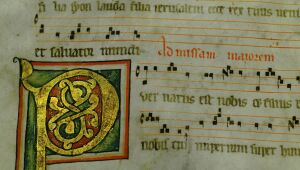 ua syon lauda filia ierusalem ecce rex tuus ueni
et saluator mundi Ad missam maiorem
Puer natus est nobis et filius
nobis cui imperium super hum